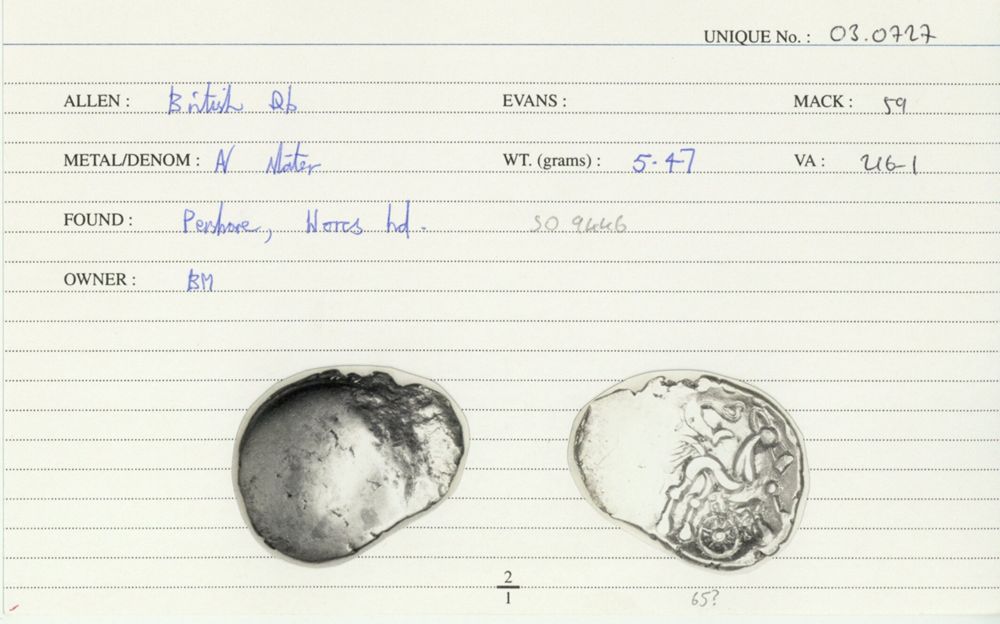 UNIQUE No. : 03.0727
ALLEN : British Qb EVANS : MACK : 59
METAL/DENOM : AV stater WT. (grams) : 5.47 VA : 216-1
FOUND : Pershore, Worcs hd. SO 9446
OWNER : BM
2
1
65?